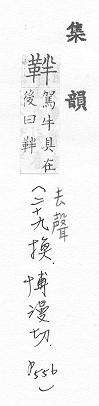 集韻
靽駕牛具在
後曰靽
去聲
(二十九換. 博漫切. P556)